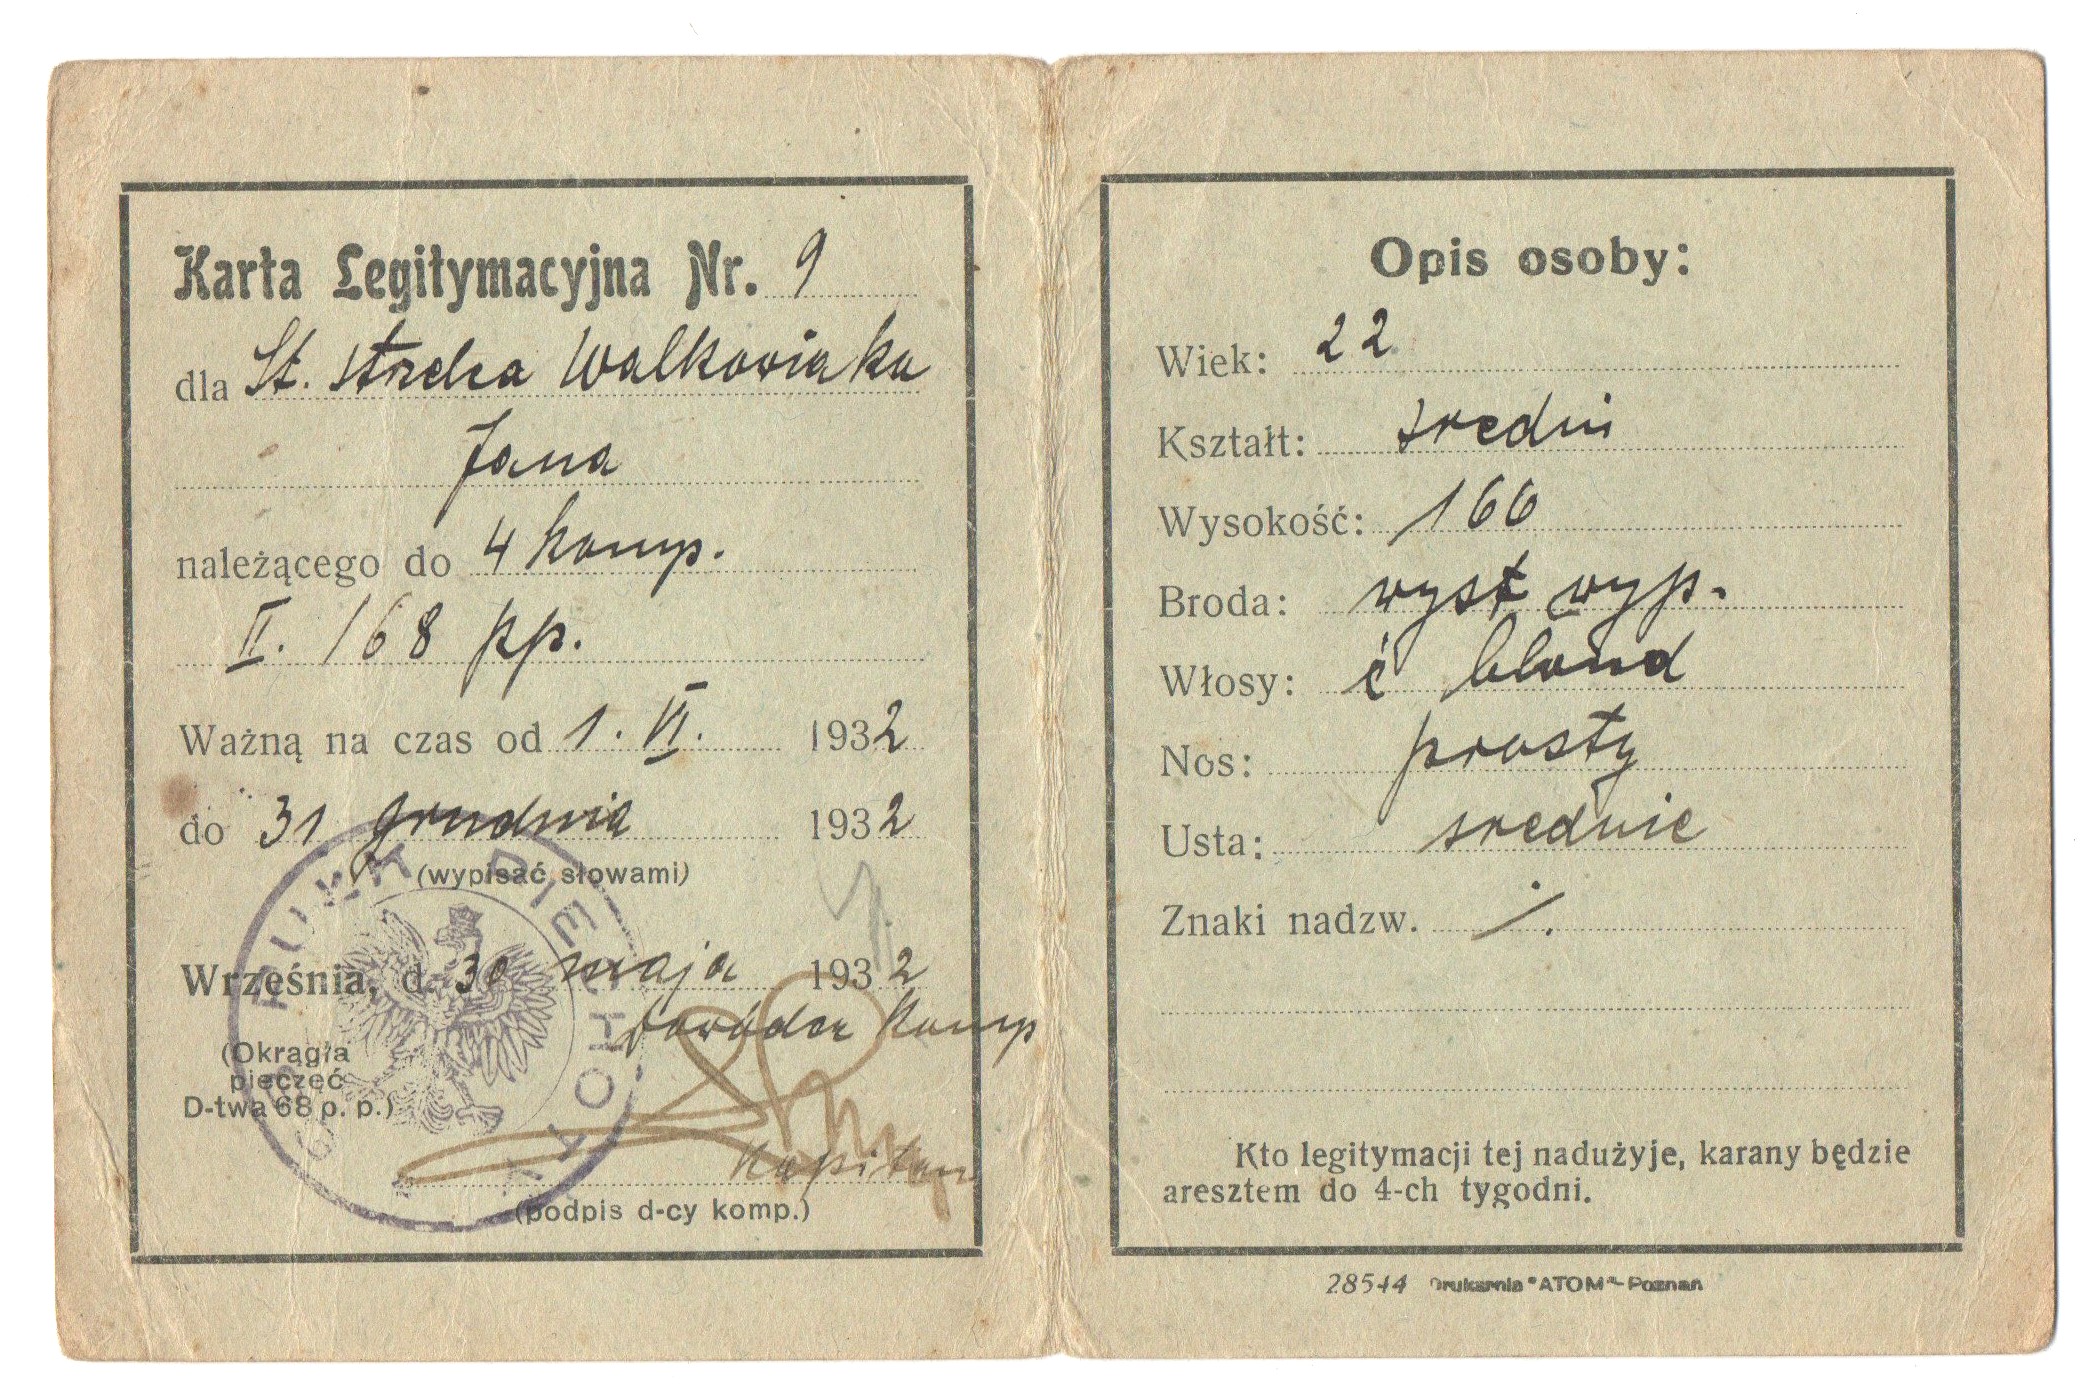 Karta Legitymacyjna Nr. 9
dla St. strzelca Walkowiaka
Jana
należącego do 4 komp.
II. /68 pp.
Ważną na czas od 1. VI. 1932
do 31 grudnia 1932
(wypisać słowami)
Września, d. 30 maja 1932
dowódca komp
(Okrągła
pieczęć
D-twa 68 p. p.)
Kapitan
(podpis d-cy komp.)
68 PUŁK PIECHOTY
Opis osoby:
Wiek: 22
Kształt: sredni
Wysokość: 166
Broda: wyst wyp.
Włosy: c blond
Nos: prosty
Usta: srednie
Znaki nadzw. ./.
Kto legitymacji tej nadużyje, karany będzie
aresztem do 4-ch tygodni.
28544 Drukarnia "ATOM" - Poznań